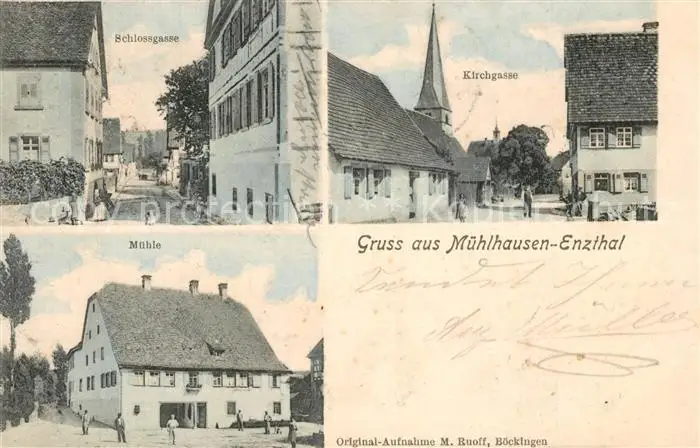 Schlossgasse
Kirchgasse
Mühle
Gruss aus Mühlhausen-Enzthal
sendet Ihnen
Müller
Original-Aufnahme M. Ruoff, Böckingen